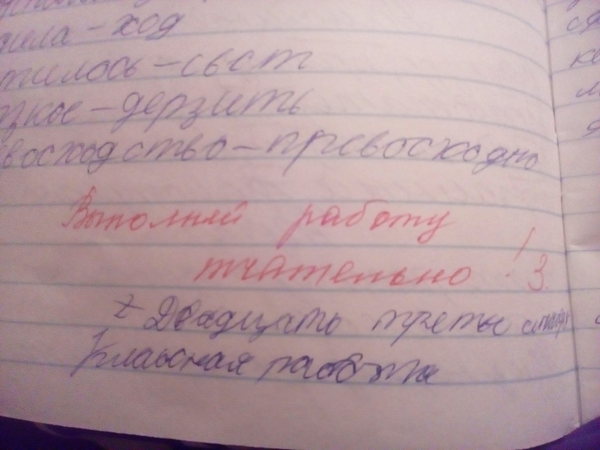 шла – ход
тилось – свст
зкое – дерзить
восходство – превосходно
Выполняй работу
тчательно ! 3.
Двадцать третье
Классная работа